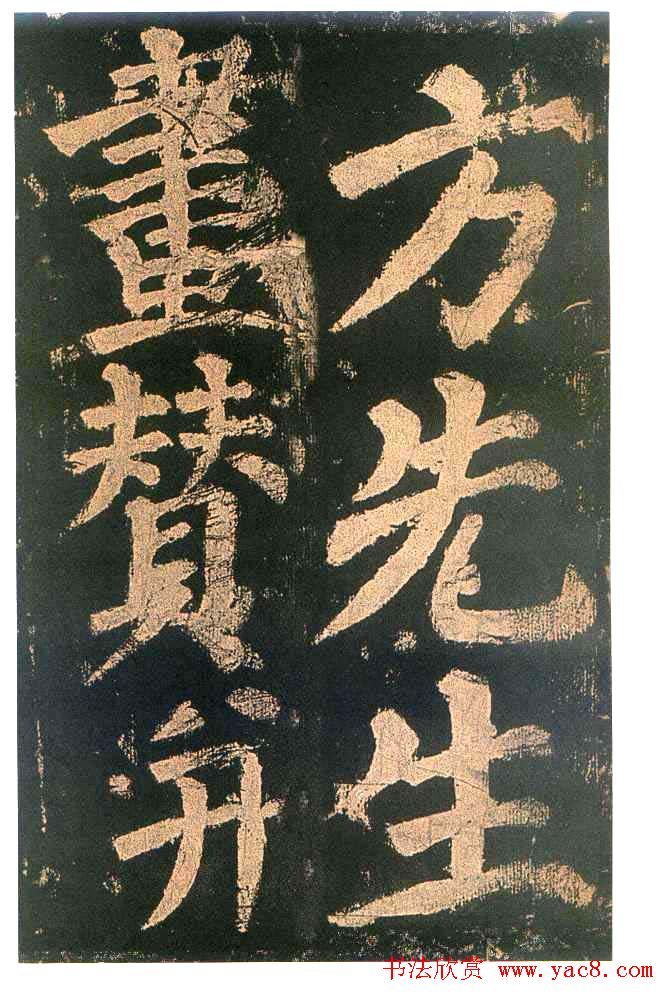 方先生
畫賛并
书法欣赏 www.yac8.com